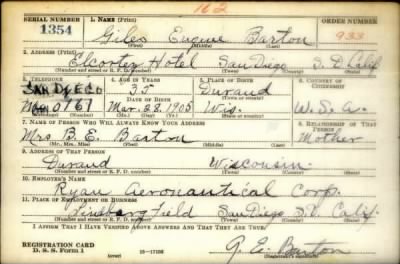 162
SERIAL NUMBER 1. NAME (Print) ORDER NUMBER
1354 Giles Eugene Barton 933
(First) (Middle) (Last)
2. ADDRESS (Print)
Elcortez Hotel San Diego S.D. Calif.
(Number and street or R. F. D. number) (Town) (County) (State)
3. TELEPHONE 4. AGE IN YEARS 5. PLACE OF BIRTH 6. COUNTRY OF CITIZENSHIP
SAN DIEGO 35 Durand
DATE OF BIRTH (Town or county)
Mar. 28 1905 Wis. U.S.A.
(Exchange) (Number) (Mo.) (Day) (Yr.) (State or country)
7. NAME OF PERSON WHO WILL ALWAYS KNOW YOUR ADDRESS 8. RELATIONSHIP OF THAT PERSON
Mrs B. E. Barton Mother
(Mr., Mrs., Miss) (First) (Middle) (Last)
9. ADDRESS OF THAT PERSON
Durand Wisconsin.
(Number and street or R. F. D. number) (Town) (County) (State)
10. EMPLOYER'S NAME
Ryan Aeronautical Corp.
11. PLACE OF EMPLOYMENT OR BUSINESS
Field San Diego S.D. Calif.
(Number and street or R. F. D. number) (Town) (County) (State)
I AFFIRM THAT I HAVE VERIFIED ABOVE ANSWERS AND THAT THEY ARE TRUE.
REGISTRATION CARD
D. S. S. Form 1 G. E. Barton
(Registrant's signature)